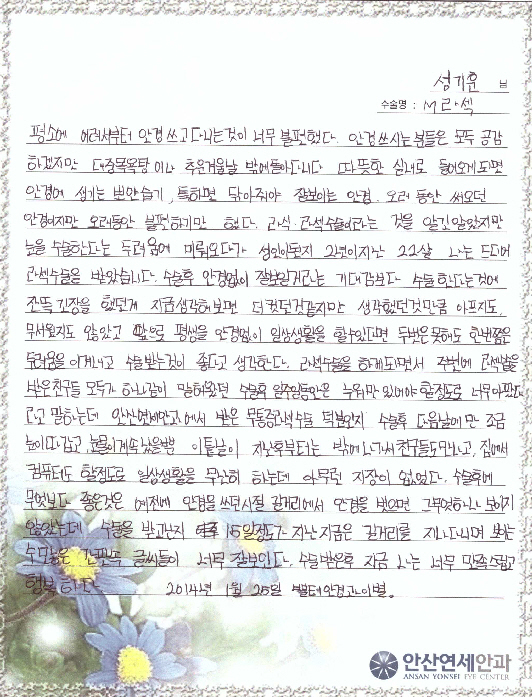 성기훈 님
수술명 : M라섹
평소에 어려서부터 안경 쓰고 다니는것이 너무 불편했다. 안경쓰시는 분들은 모두 공감
하겠지만 대중목욕탕이나 추운겨울날 밖에돌아다니다 따뜻한 실내로 들어오게되면
안경에 생기는 뽀얀습기, 툭하면 닦아줘야 잘보이는 안경. 오랜 동안 써오던
안경이지만 오랜동안 불편하기만 했다. 라식, 라섹수술이라는 것을 알긴알았지만
눈을 수술한다는 두려움에 미뤄오다가 성인이된지 2년이지난 22살 나는 드디어
라섹수술을 받았습니다. 수술후 안경없이 잘보일거라는 기대감보다 수술한다는것에
잔뜩 긴장을 했던게 지금생각해보면 더컸던것같지만 생각했던것만큼 아프지도,
무서웠지도 않았고 앞으로 평생을 안경없이 일상생활을 할수있다면 두번은못해도 한번쯤은
두려움을 이겨내고 수술받는것이 좋다고 생각한다. 라섹수술을 하게되면서 주변에 라섹을
받은친구들 모두가 하나같이 말해왔던 수술후 일주일동안은 누워만 있어야 할정도로 너무아팠다
라고 말하는데 안산연세안과에서 받은 무통라섹수술 덕분인지 수술후 다음날에만 조금
눈이따갑고, 눈물이계속났을뿐 이튿날이 지난후부터는 밖에나가서 친구들도만나고, 집에서
컴퓨터도 할정도로 일상생활을 무난히 하는데 아무런 지장이 없었다. 수술후에
무엇보다 좋은것은 예전에 안경을 쓰던시절 길거리에서 안경을 벗으면 그무엇하나 보이지
않았는데 수술을 받고난지 15일정도가 지난지금은 길거리를 지나다니며 보는
수많은 간판속 글씨들이 너무 잘보인다. 수술받은후 지금 나는 너무 만족스럽고
행복하다. 2014년 1월 25일 벌써안경과이별.
안산연세안과
ANSAN YONSEI EYE CENTER